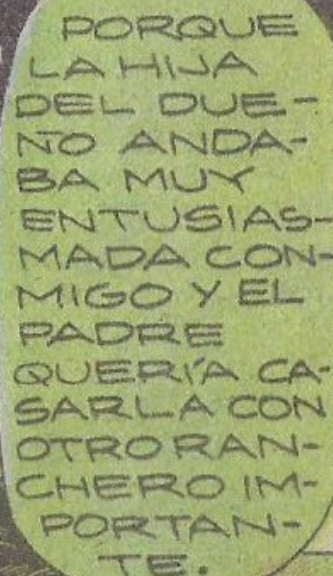 PORQUE
LA HIJA
DEL DUE-
ÑO ANDA-
BA MUY
ENTUSIAS-
MADA CON-
MIGO Y EL
PADRE
QUERÍA CA-
SARLA CON
OTRO RAN-
CHERO IM-
PORTAN-
TE.